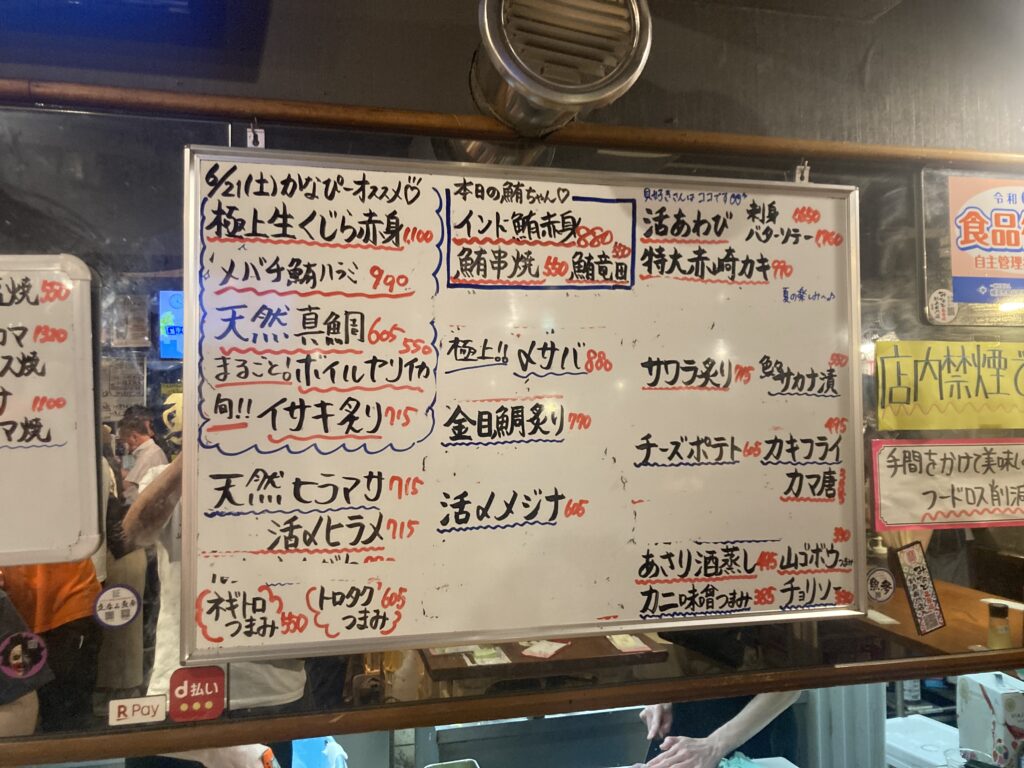 6/21(土)かなぴーオススメ♡
極上生くじら赤身 1,100
メバチ鮪ハラミ 990
天然真鯛 605
まるごと!ボイルヤリイカ 550
旬!!イサキ炙り 715
天然ヒラマサ 715
活〆ヒラメ 715
ネギトロつまみ
トロタク つまみ 605
本日の鮪ちゃん♡
インド鮪赤身 880
鮪串焼 550 鮪竜田
極上!!〆サバ 880
金目鯛炙り 770
活〆メジナ 605
貝好きさんはココです
活あわび 刺身 1650
バターソテー
特大赤崎カキ 990
夏の楽しみへ♪
サワラ炙り 715 サカナ漬 550
チーズポテト 605 カキフライ 495
カマ唐
あさり酒蒸し 495 山ゴボウつまみ
カニ味噌つまみ 385 チョリソー
焼 550
カマ 1320
ス焼
サ 1100
マ焼
R Pay
d払い
令和
食品
自主管理
店内禁煙で
手間をかけて美味し
フードロス削減
魚参